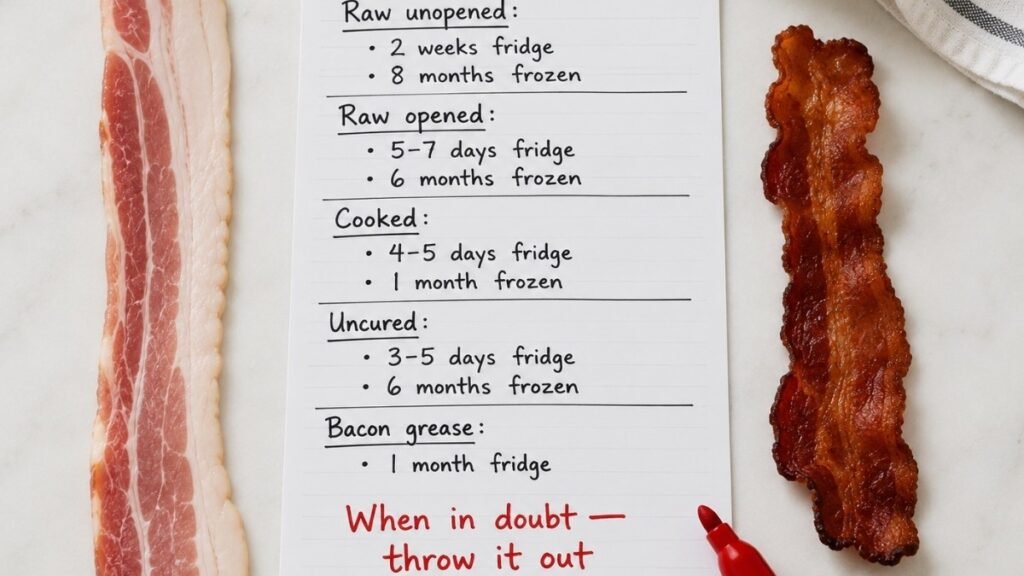 Raw unopened:
• 2 weeks fridge
• 8 months frozen
Raw opened:
• 5-7 days fridge
• 6 months frozen
Cooked:
• 4-5 days fridge
• 1 month frozen
Uncured:
• 3-5 days fridge
• 6 months frozen
Bacon grease:
• 1 month fridge
When in doubt —
throw it out